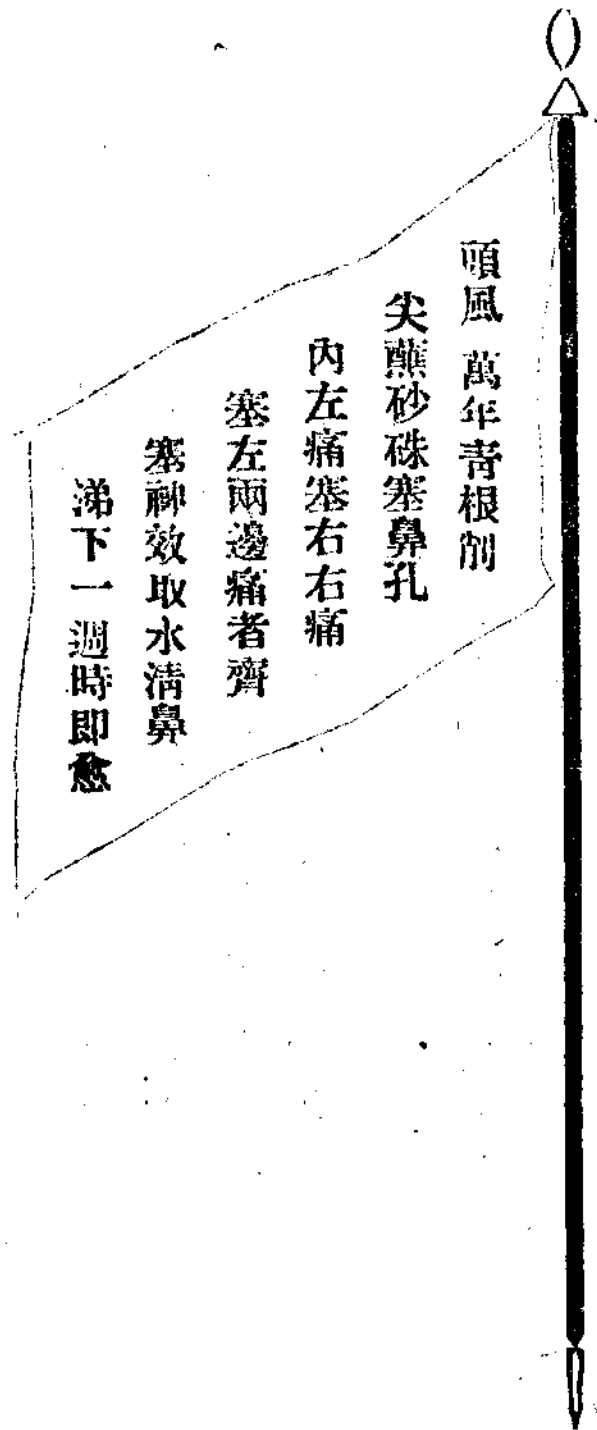 頭風 萬年青根削
尖蘸砂硃塞鼻孔
內左痛塞右右痛
塞左兩邊痛者齊
塞神效取水清鼻
涕下一週時即愈